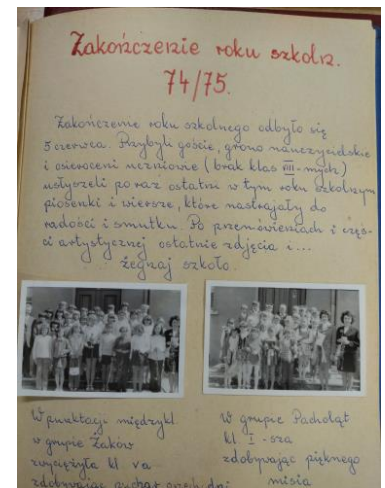 Zakończenie roku szkoln.
74/75.
Zakończenie roku szkolnego odbyło się
5 czerwca. Przybyli goście, grono nauczycielskie
i osieroceni uczniowie (brak klas VIII-mych)
usłyszeli po raz ostatni w tym roku szkolnym
piosenki i wiersze, które nastrajały do
radości i smutku. Po przemówieniach i częś-
ci artystycznej ostatnie zdjęcia i...
żegnaj szkoło.
W punktacji międzykl.
w grupie Żaków
zwyciężyła kl. Va
zdobywając puchar
W grupie Pacholąt
kl. I-sza
zdobywając pięknego
misia